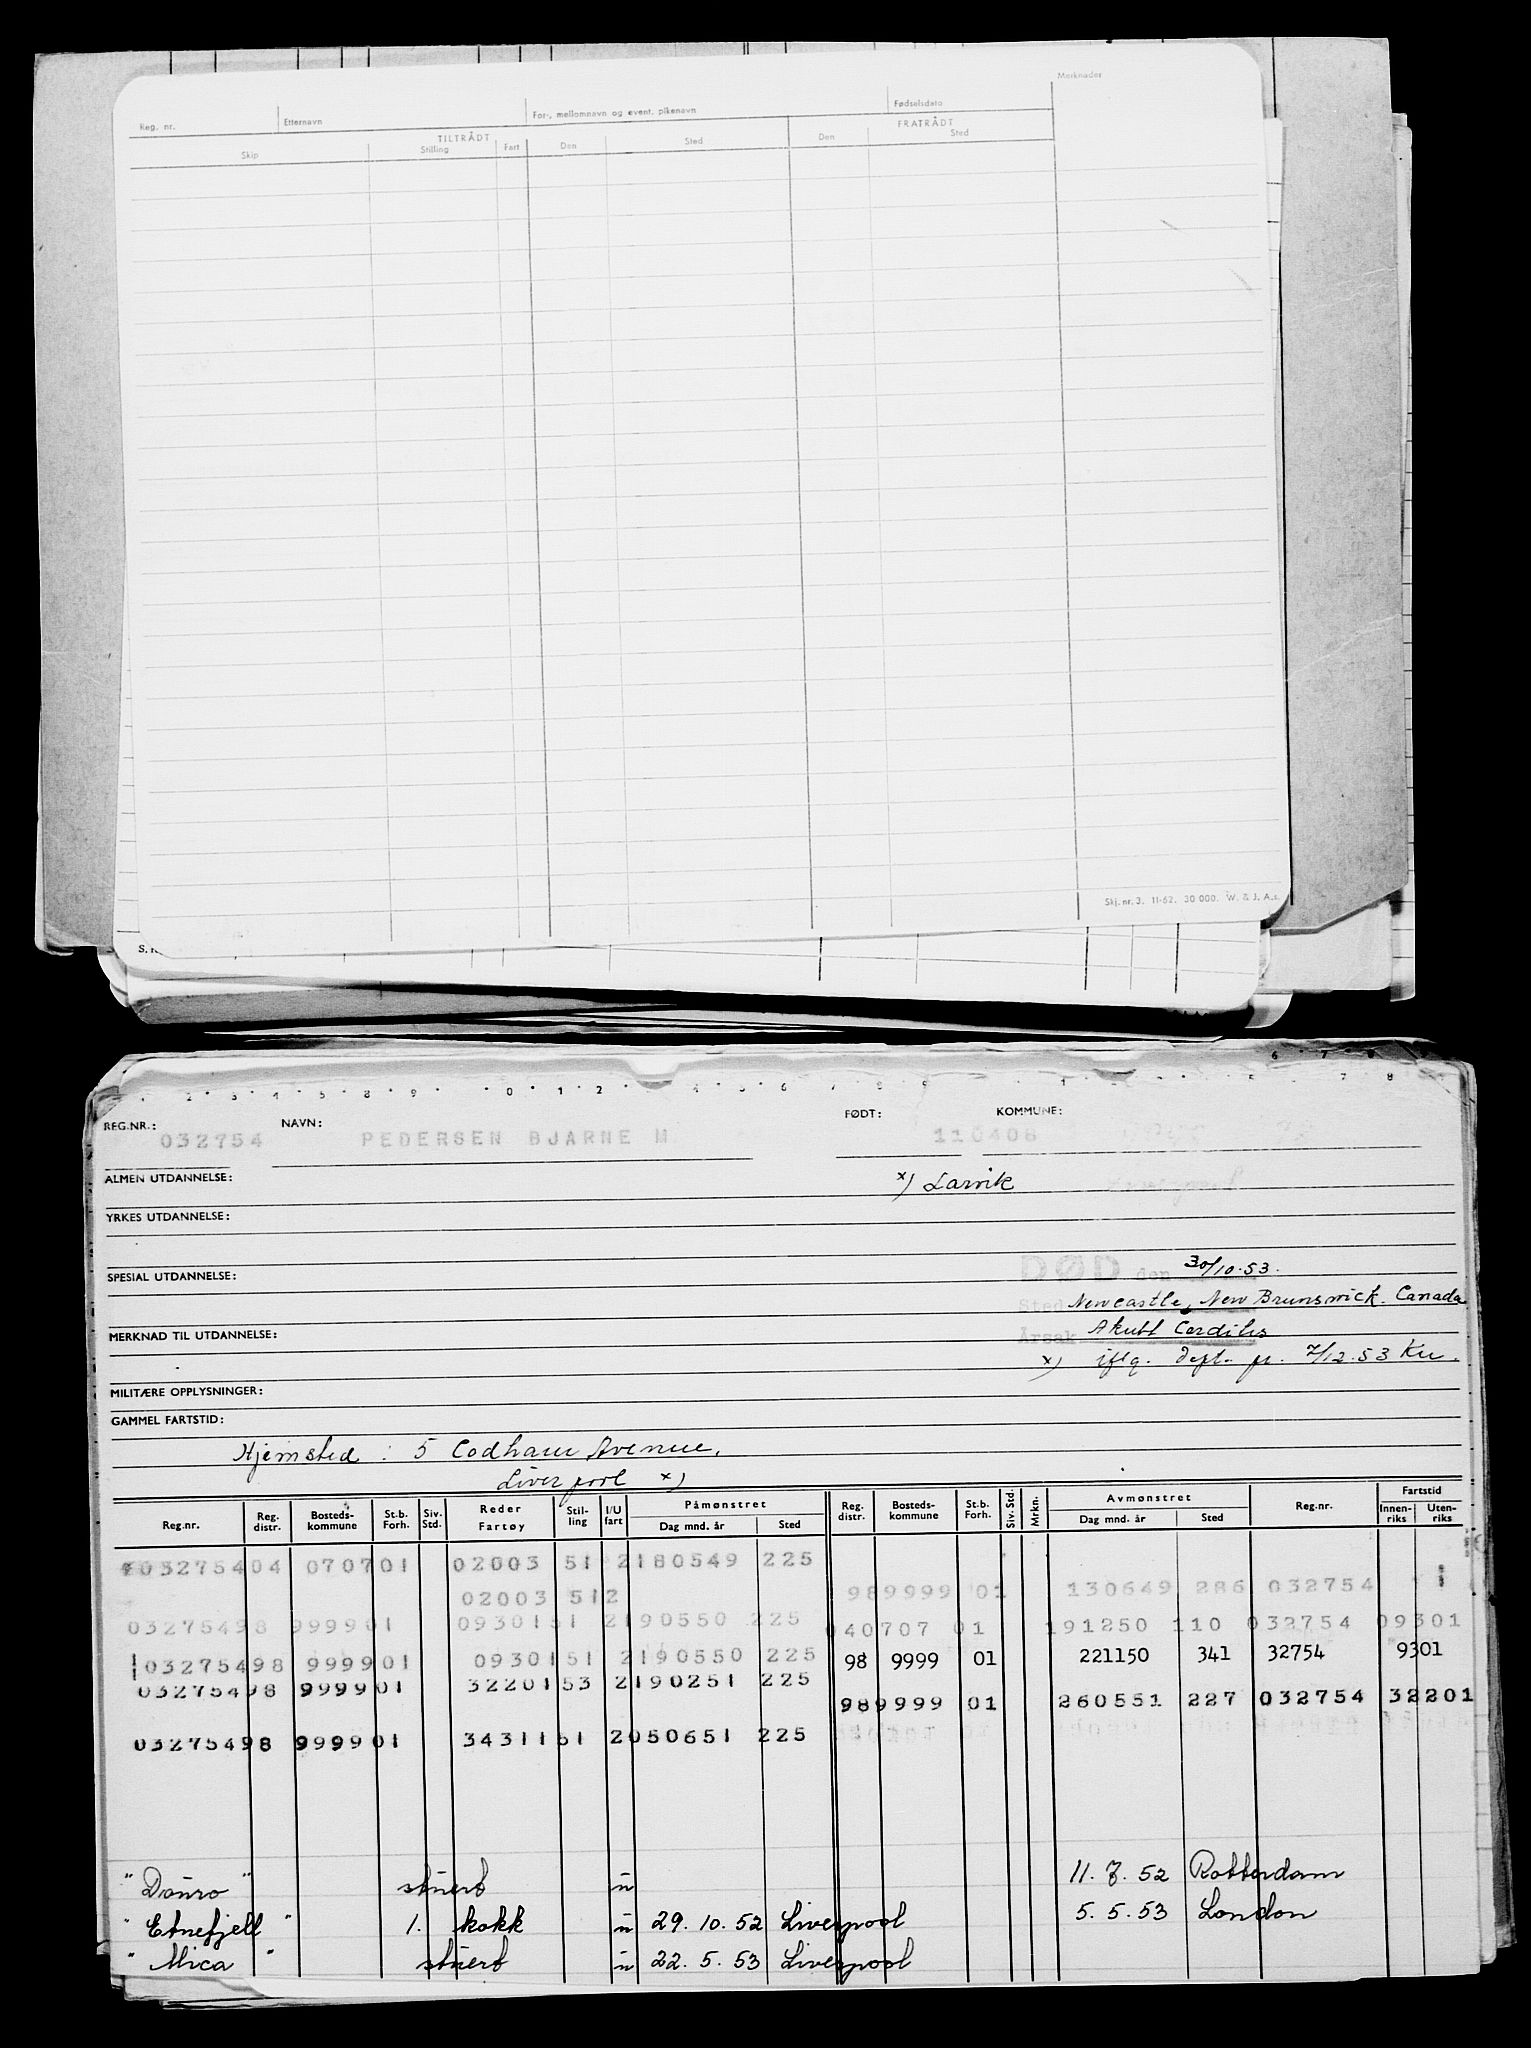 Merknader
Reg. nr. Etternavn For-, mellomnavn og event. pikenavn Fødselsdato
TILTRÅDT FRATRÅDT
Skip Stilling Fart Den Sted Den Sted
Skj. nr. 3. 11-62. 30 000. W. & J. A.s.
REG.NR.: 032754 NAVN: PEDERSEN BJARNE M FØDT: 110408 KOMMUNE:
ALMEN UTDANNELSE: x) Larvik
YRKES UTDANNELSE:
SPESIAL UTDANNELSE: DØD den 30/10.53.
Sted Newcastle, New Brunswick. Canada
MERKNAD TIL UTDANNELSE: Årsak Akutt Carditis
x) iflg. dept. pr. 7/12.53 Ku.
MILITÆRE OPPLYSNINGER:
GAMMEL FARTSTID:
Hjemsted : 5 Codham Avenue,
Liverpool x)
Reg.nr. Reg. distr. Bosteds-kommune St.b. Forh. Siv. Std. Reder Fartøy Stil-ling I/U fart Påmønstret Dag mnd. år Sted Reg. distr. Bosteds-kommune St.b. Forh. Siv. Std. Mrkn. Avmønstret Dag mnd. år Sted Reg.nr. Fartstid Innen-riks Uten-riks
03275404 070701 02003 51 2180549 225
02003 512 989999 01 130649 286 032754
03275498 999901 0930151 2190550 225 040707 01 191250 110 032754 09301
03275498 999901 0930151 2190550 225 98 9999 01 221150 341 32754 9301
03275498 999901 3220153 2190251 225
989999 01 260551 227 032754 32201
03275498 999901 3431151 2050651 225
"Douro" stuert u 11.7.52 Rotterdam
"Etnefjell" 1. kokk u 29.10.52 Liverpool 5.5.53 London
"Mica" stuert u 22.5.53 Liverpool